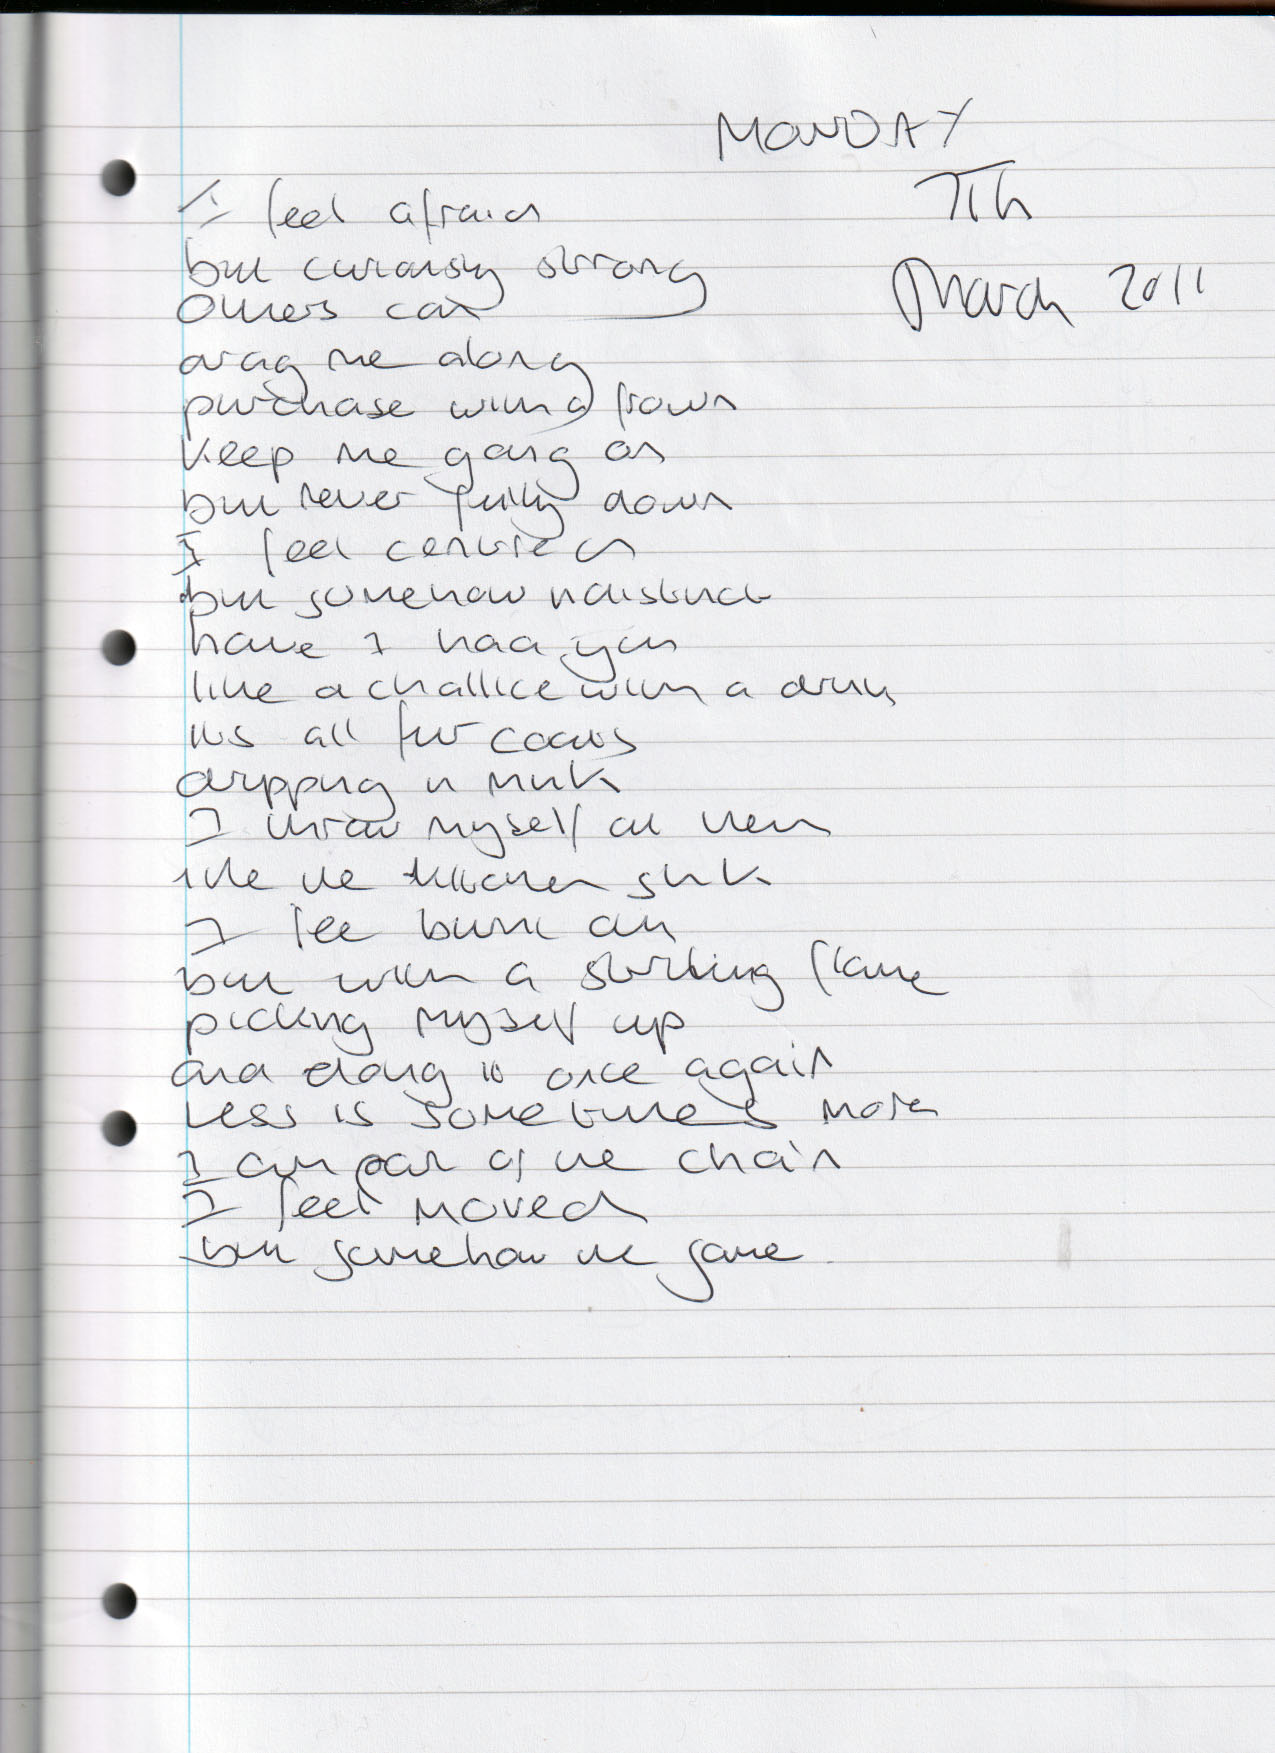 MONDAY
7th
March 2011
I feel afraid
but curiously strong
Others can
drag me along
purchase with a frown
keep me going on
but never fully down
I feel centred
but somehow indistinct
have I had you
like a challice with a drink
its all fur coats
dripping in mink
I throw myself at them
like the kitchen sink
I feel burnt out
but with a startling flame
picking myself up
and doing it once again
Less is sometimes more
I am part of the chain
I feel moved
but somehow the same